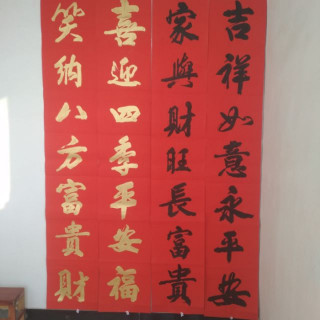 吉祥如意永平安
家與財旺長富貴
喜迎四季平安福
笑納八方富貴財